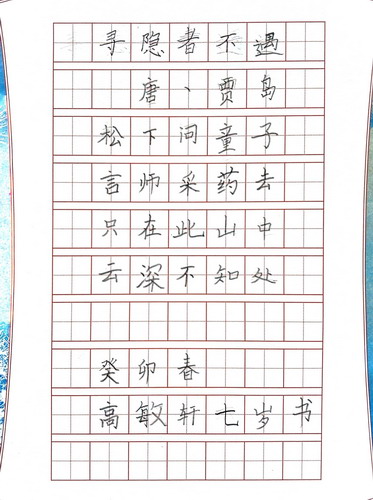 寻隐者不遇
唐、贾岛
松下问童子
言师采药去
只在此山中
云深不知处
癸卯春
高敏轩七岁书